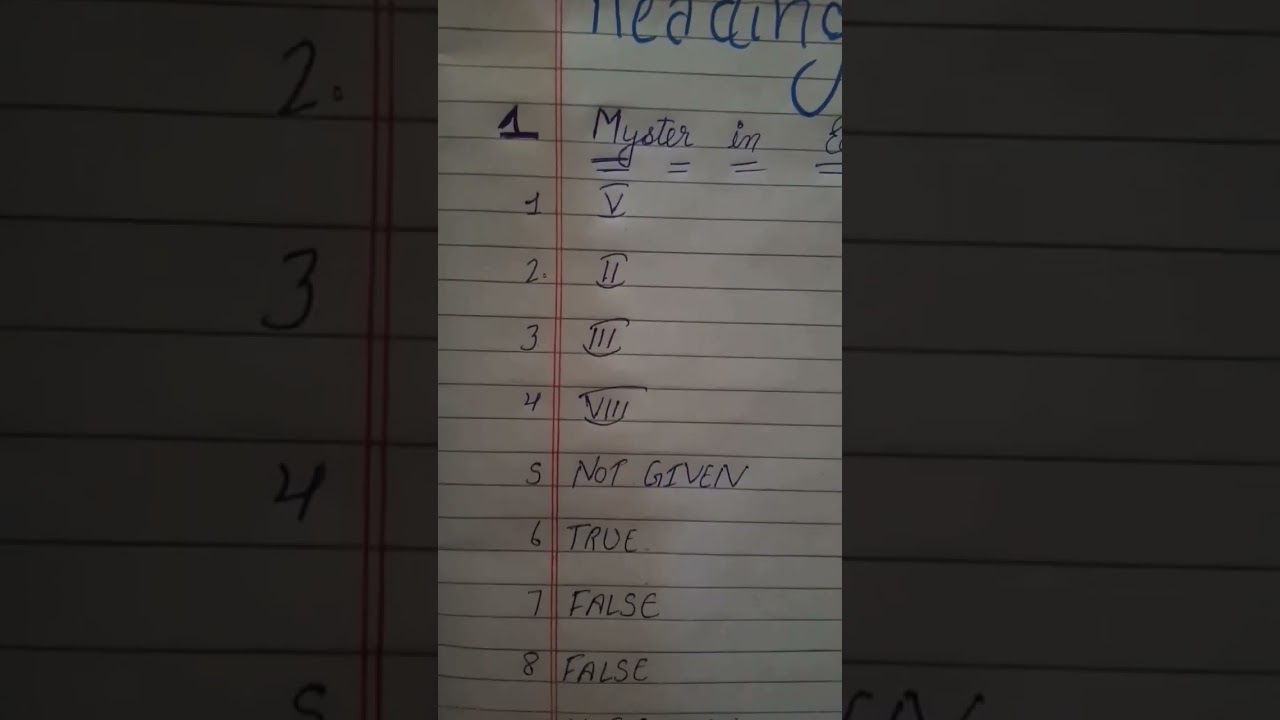 Reading
1 Myster in E
1 V
2. II
3 III
4 VIII
5 NOT GIVEN
6 TRUE
7 FALSE
8 FALSE
2.
3
4
5